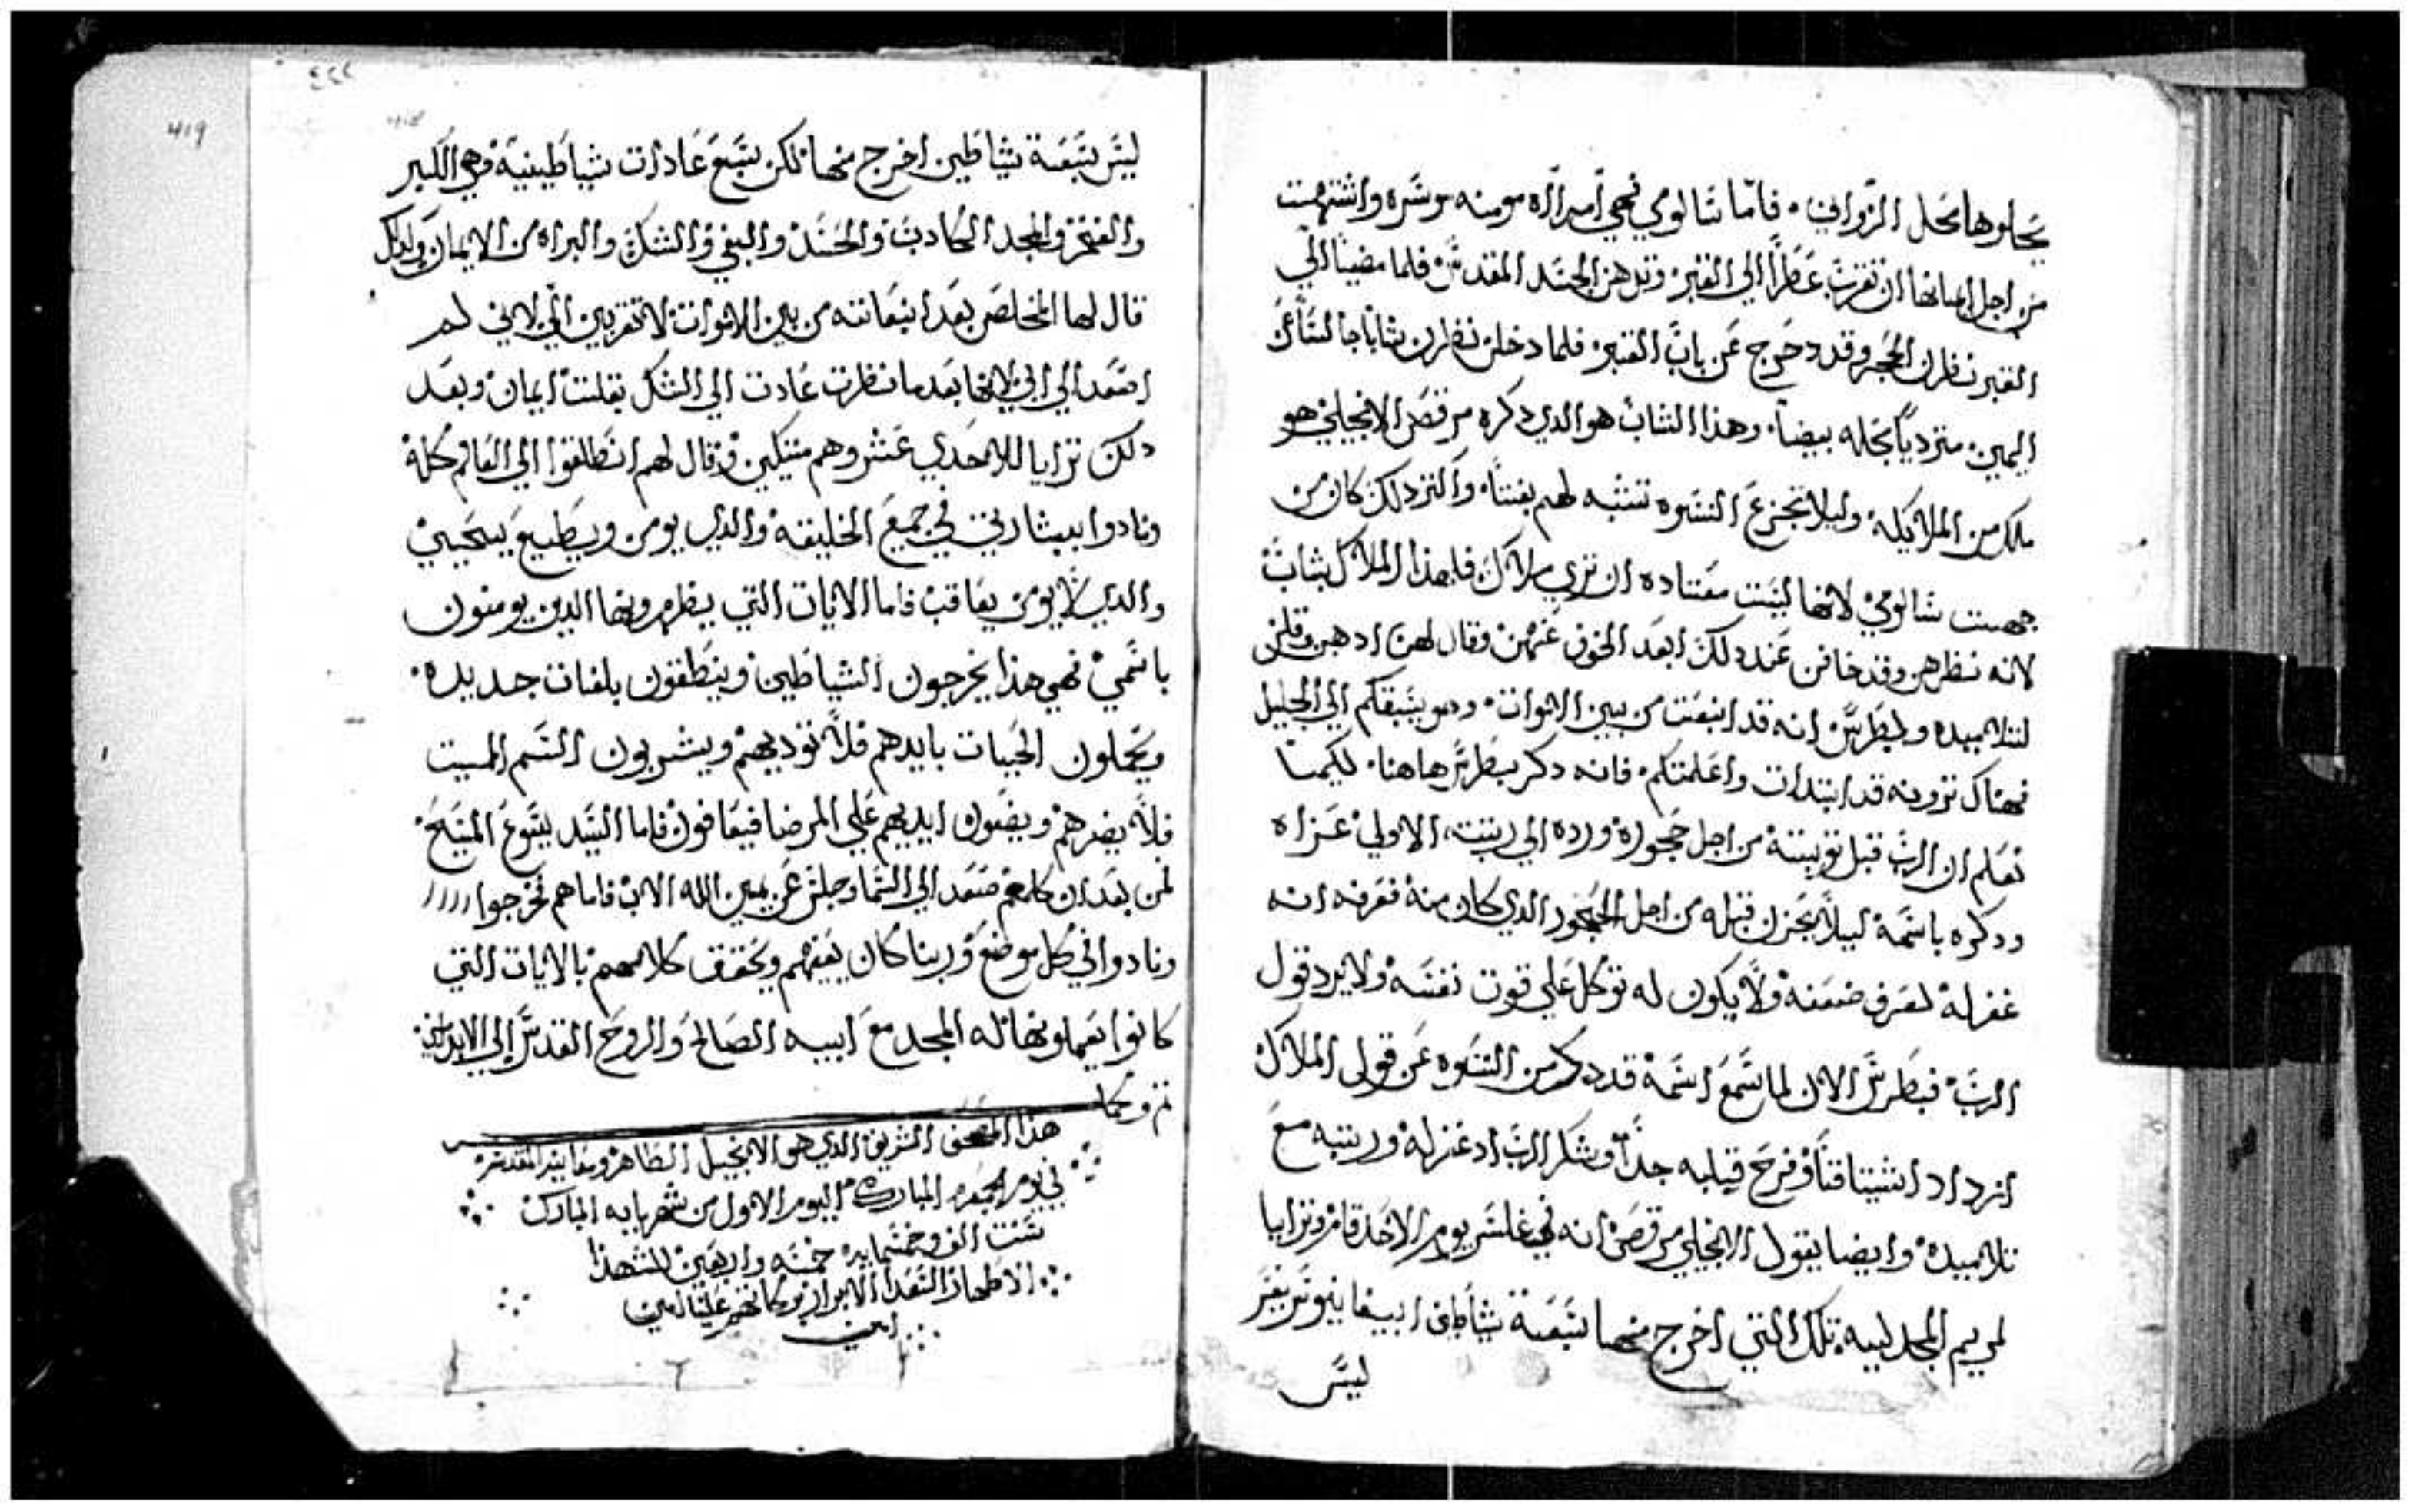 يحلوها محل الزواني. فاما سالومي فهي امراه مومنه موسره واشتهت
من اجل ايمانها ان تقرب عطرا الي القبر وتدهن الجسد المقدس فلما مضينا الي
القبر نظرن الحجر وقد دحرج عن باب القبر فلما دخلن نظرن شابا جالسا عن
اليمين متردياً بحله بيضا. وهذا الشاب هو الدي دكره مرقص الانجيلي هو
ملاك من الملايكه وليلا تجزع النسوه تشبه لهم بفتا. واكتر دلك كان من
جهت سالومي لانها ليست معتاده ان تري ملاك فلهدا الملاك بشاب
لانه نظرهن وقد خافن عند دلك ابعد الخوف عنهن وقال لهن ادهبن وقلن
لتلاميده ولبطرس انه قد انبعت من بين الاموات. وهو يسبقكم الي الجليل
فهناك ترونه قد ابتدات واعلمتكم. فانه دكر بطرس هاهنا. لكيما
نعلم ان الرب قبل توبته من اجل حجوده ورده الي رتبته الاولي عزاه
ودكره باسمه ليلا يحزن قبله من اجل الجحود الدي كان منه فعرفه انه
غفر له لعرف ضعفه ولا يكون له توكل علي قوت نفسه ولا يرد قول
الرب فبطرس الان لما سمع اسمه قد دكر من النسوه عن قول الملاك
ازداد اشتياقاً وفرح قلبه جداً وشكر الرب اد غفر له ورتبه مع
تلاميده وايضا يقول الانجيلي مرقص انه في غلس يوم الاحد قام وترايا
لمريم المجدليه تلك التي اخرج منها سبعة شياطين
ليس
٤٢٢
419
ليس سبعة شياطين اخرج منها لكن سبع عادات شيطانية وهي الكبر
والفخر والمجد الكادب والحسد والبغي والشك والبراه من الايمان ولدلك
قال لها المخلص بعد انبعاته من بين الاموات لا تقربين الي لاني لم
اصعد الي ابي لانها بعد ما نظرت عادت الي الشك بقلت ايمان وبعد
دلك ترايا للاحدي عشر وهم متكين وقال لهم انطلقوا الي العالم كله
ونادوا ببشارتي في جميع الخليقه والدي يومن ويطيع يستحيي
والدي لا يومن يعاقب فاما الايات التي يظهرونها الدين يومنون
باسمي فهي هدا يخرجون الشياطين وينطقون بلغات جديده.
ويحملون الحيات بايدهم فلا توديهم ويشربون السم المميت
فلا يضرهم ويضعون ايديهم علي المرضا فيعافون فاما السيد يسوع المسيح
لمن بعد ان كلمهم صعد الي السما وجلس عن يمين الله الاب فاما هم فخرجوا
ونادوا في كل موضع وربنا كان يعينهم ويحقق كلامهم بالايات التي
كانوا يعملونها له المجد مع ابيه الصالح والروح القدس الي الابد امين
تم وكمل
هدا المصحف الشريف الدي هو الانجيل الطاهر
في يوم الجمعه المباركه اليوم الاول من شهر بابه المبارك
سنت الف وخمسمايه خمسه واربعين للشهدا
الاطهار السعدا الابرار بركاتهم علينا امين
امين